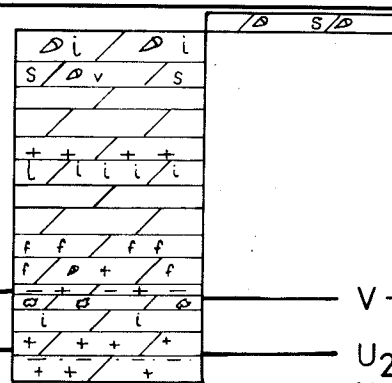 s s
i i
s v s
+ + + +
i i i i i
f f f f
f + f
- + - + -
V -
i i
+ + + +
U2
+ + +